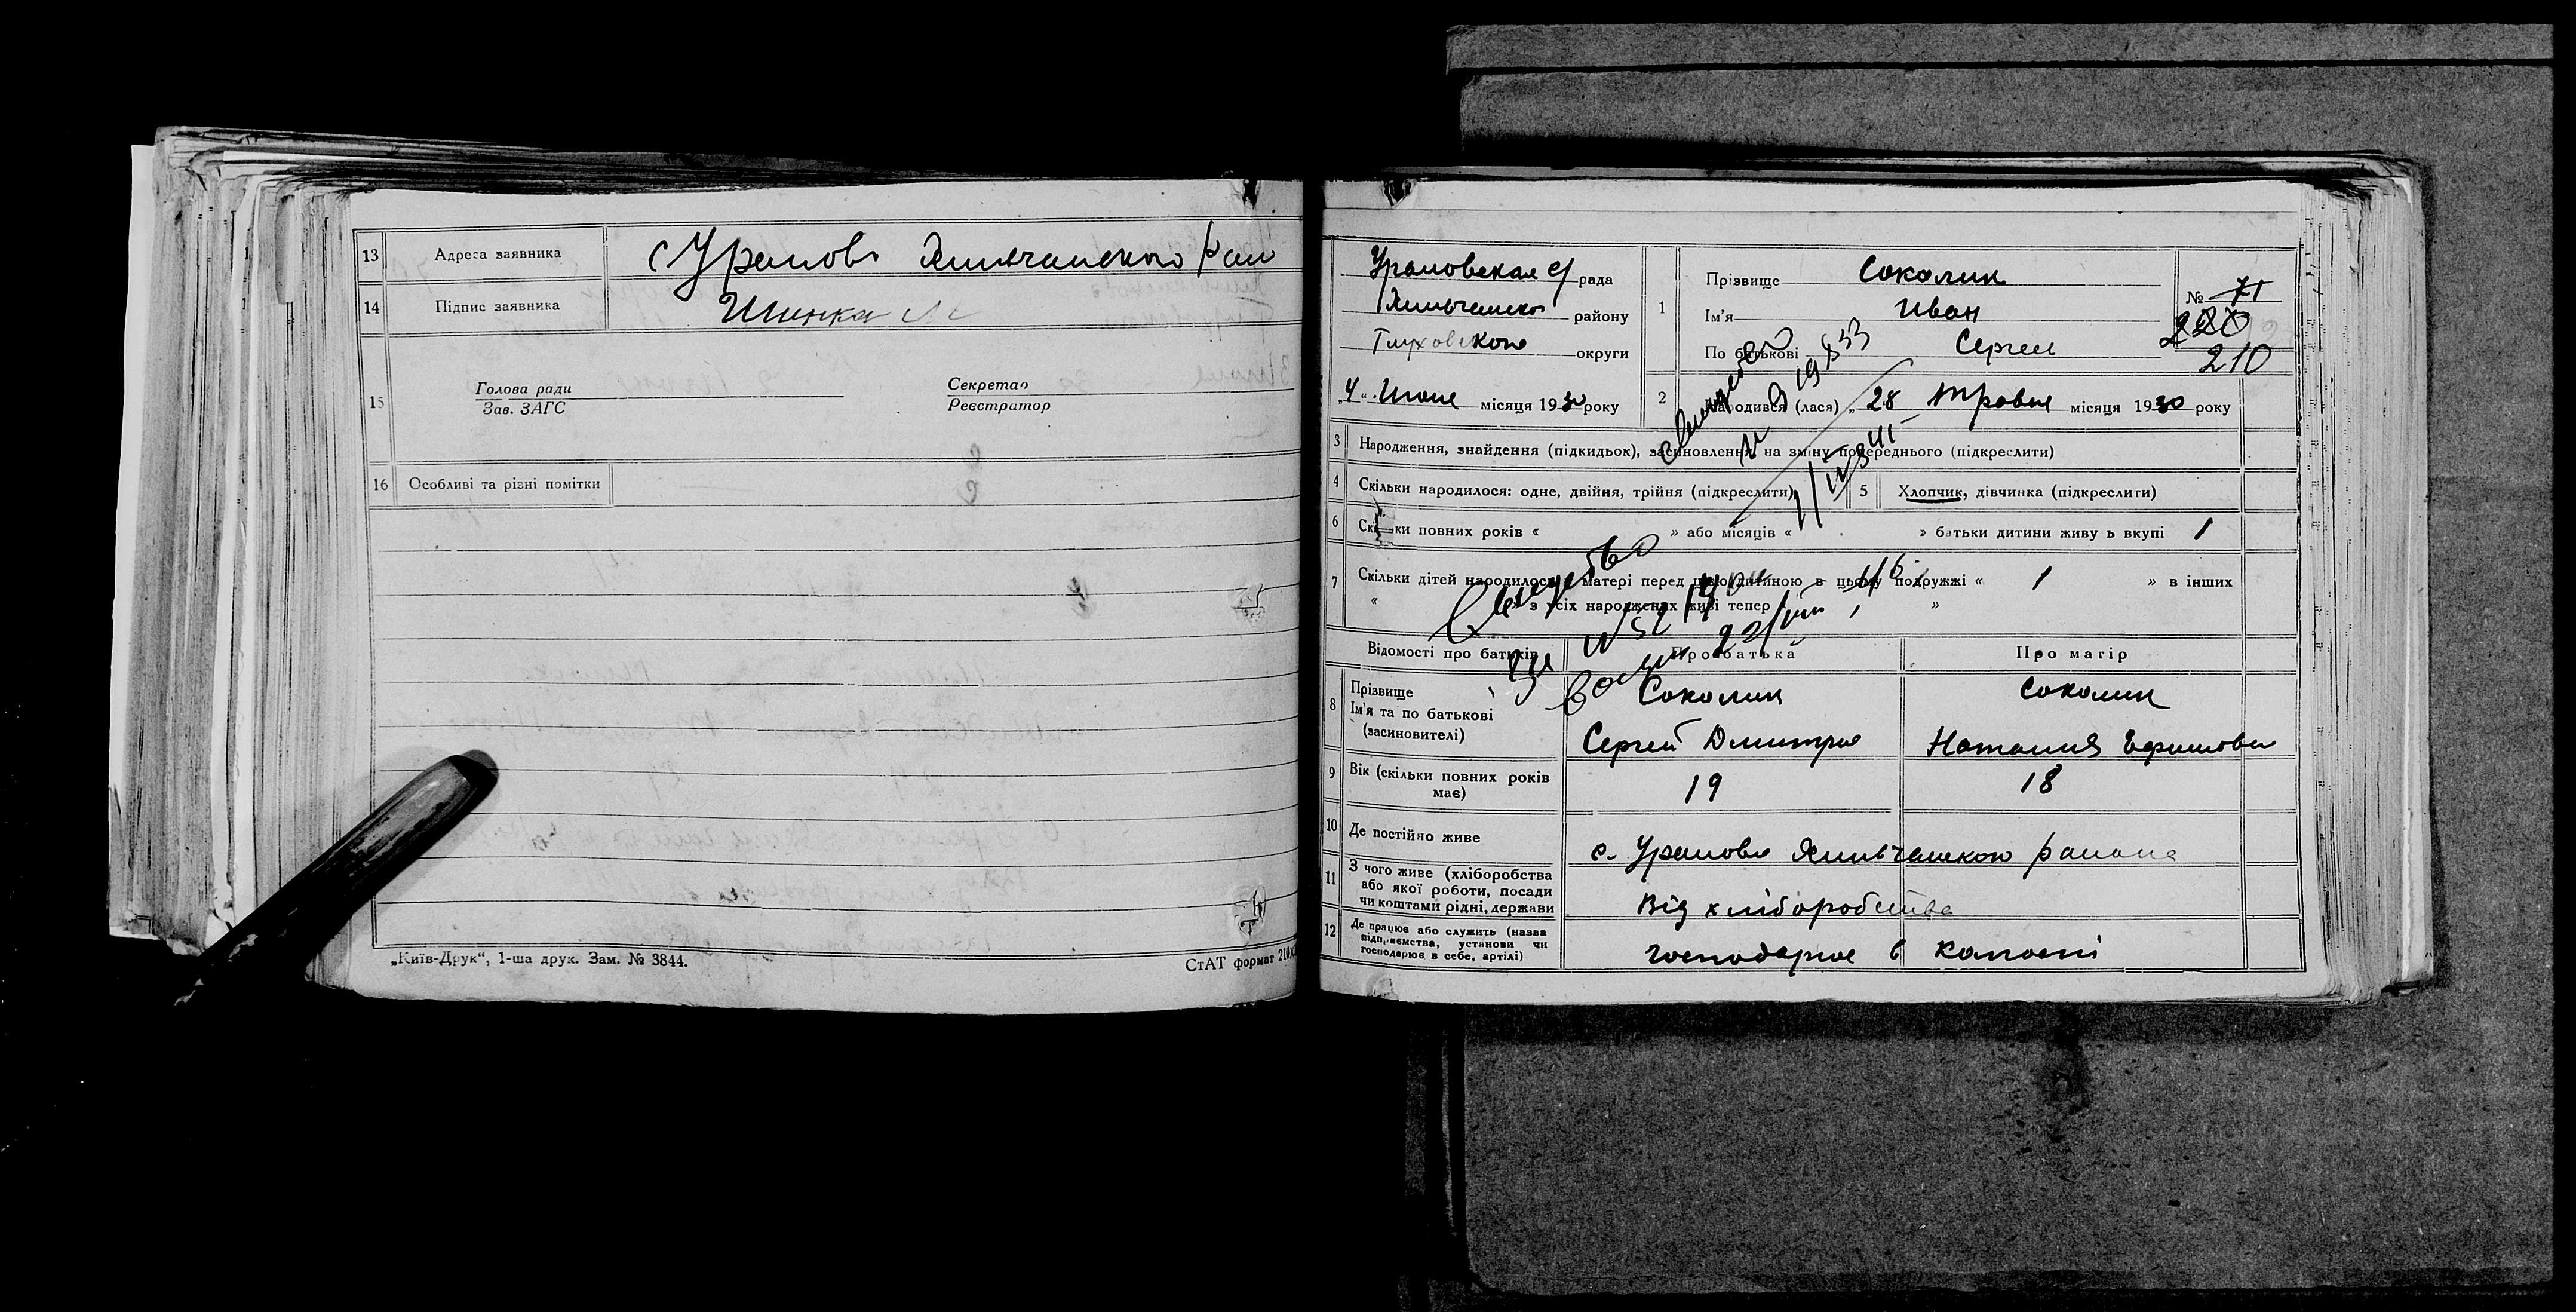 13 Адреса заявника с Уралово Хильчанского Рай
14 Підпис заявника Шинка
15 Голова ради
Зав. ЗАГС
Секретар
Реєстратор
16 Особливі та різні помітки
„Київ-Друк“, 1-ша друк. Зам. № 3844.
СтАТ формат 210
Ураловская с/рада
району
Глуховского округи
„4“ Июня місяця 1930 року
1 Прізвище Соколик
Ім'я Иван
По батькові Сергеи
№ 71
220
210
2 Народився (лася) „28 Травня місяця 1930 року
Свидетство
3 Народження, знайдення (підкидьок), засиновлення на зміну попереднього (підкреслити)
4 Скільки народилося: одне, двійня, трійня (підкреслити)
5 Хлопчик, дівчинка (підкреслити)
6 Скільки повних років « » або місяців « » батьки дитини живуть вкупі 1
7 Скільки дітей народилося матері перед цією дитиною в цьому подружжі « 1 » в інших
« з усіх народжених живі тепер »
Відомості про батьків Про батька Про матір
8 Прізвище Соколик Соколик
Ім'я та по батькові
(засиновителі) Сергей Дмитрие Наталия Ефимовн
9 Вік (скільки повних років має) 19 18
10 Де постійно живе с. Уралово района
11 З чого живе (хліборобства
або якої роботи, посади
чи коштами рідні, держави Від хліборобства
12 Де працює або служить (назва
підприємства, установи чи
господарює в себе, артілі) господарює в